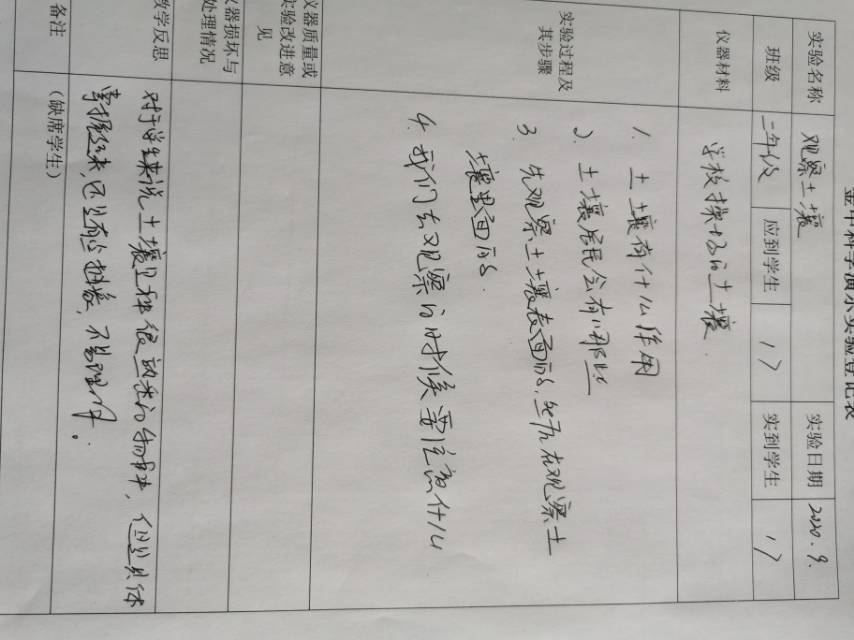 金中科学演示实验登记表
实验名称 观察土壤 实验日期 2020.9.
班级 二年级 应到学生 17 实到学生 17
仪器材料 学校操场的土壤.
实验过程及
其步骤
1. 土壤有什么作用
2. 土壤居民会有哪些
3. 先观察土壤表面的, 然后在观察土
壤里面的.
4. 我们去观察的时候要注意什么
仪器质量或
实验改进意
见
仪器损坏与
处理情况
教学反思
对于学生来说土壤是种很
的事物, 但是具体
掌握起来, 还是有些抽象, 不易理解.
备注 （缺席学生）